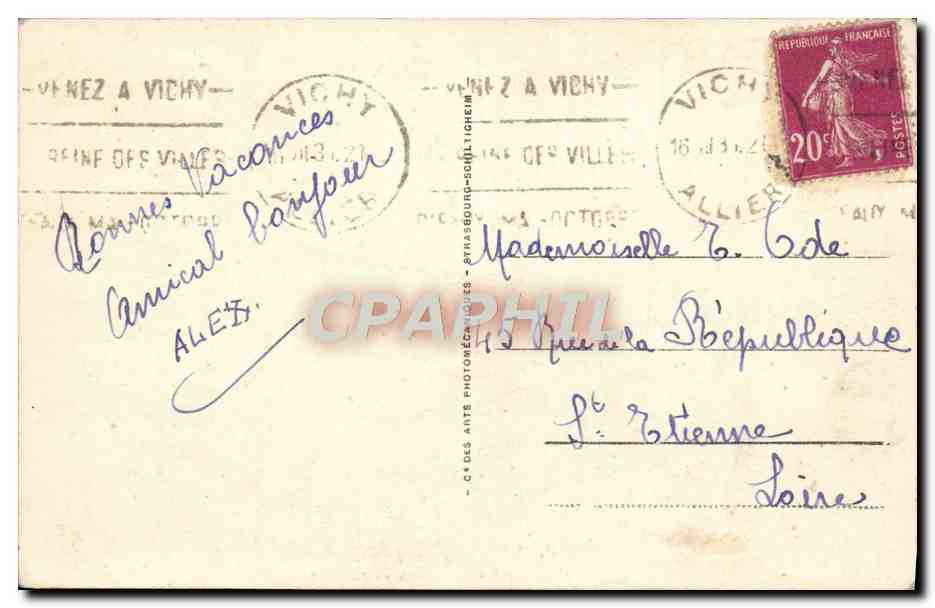 VENEZ A VICHY
REINE DES VILLES
VICHY
ALLIER
VENEZ A VICHY
REINE DES VILLES
VICHY
16
ALLIER
REPUBLIQUE FRANÇAISE
20c
POSTES
Bonnes Vacances
Amical bonjour
ALEX.
CPAPHIL
- Cie DES ARTS PHOTOMÉCANIQUES - STRASBOURG-SCHILTIGHEIM
Mademoiselle
Rue de la République
St Etienne
Loire